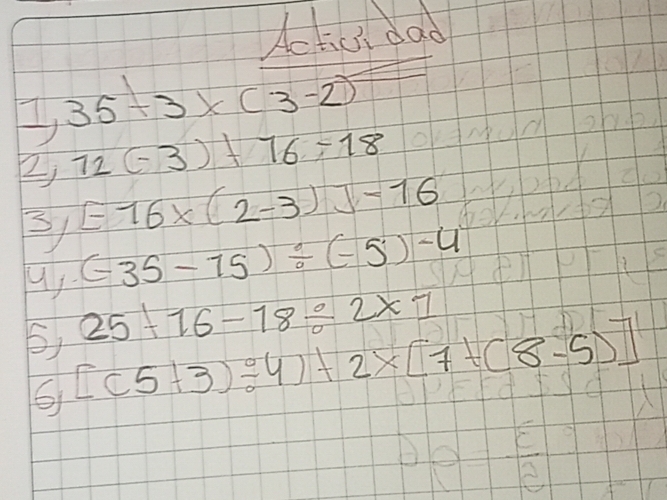 Actividad
1, 35+3×(3-2)
2, 12(-3)+16-18
3, [-16×(2-3)]-16
4, (-35-15)÷(-5)-4
5, 25+16-18÷2×1
6, [(5+3)÷4)+2×[7+(8-5)]